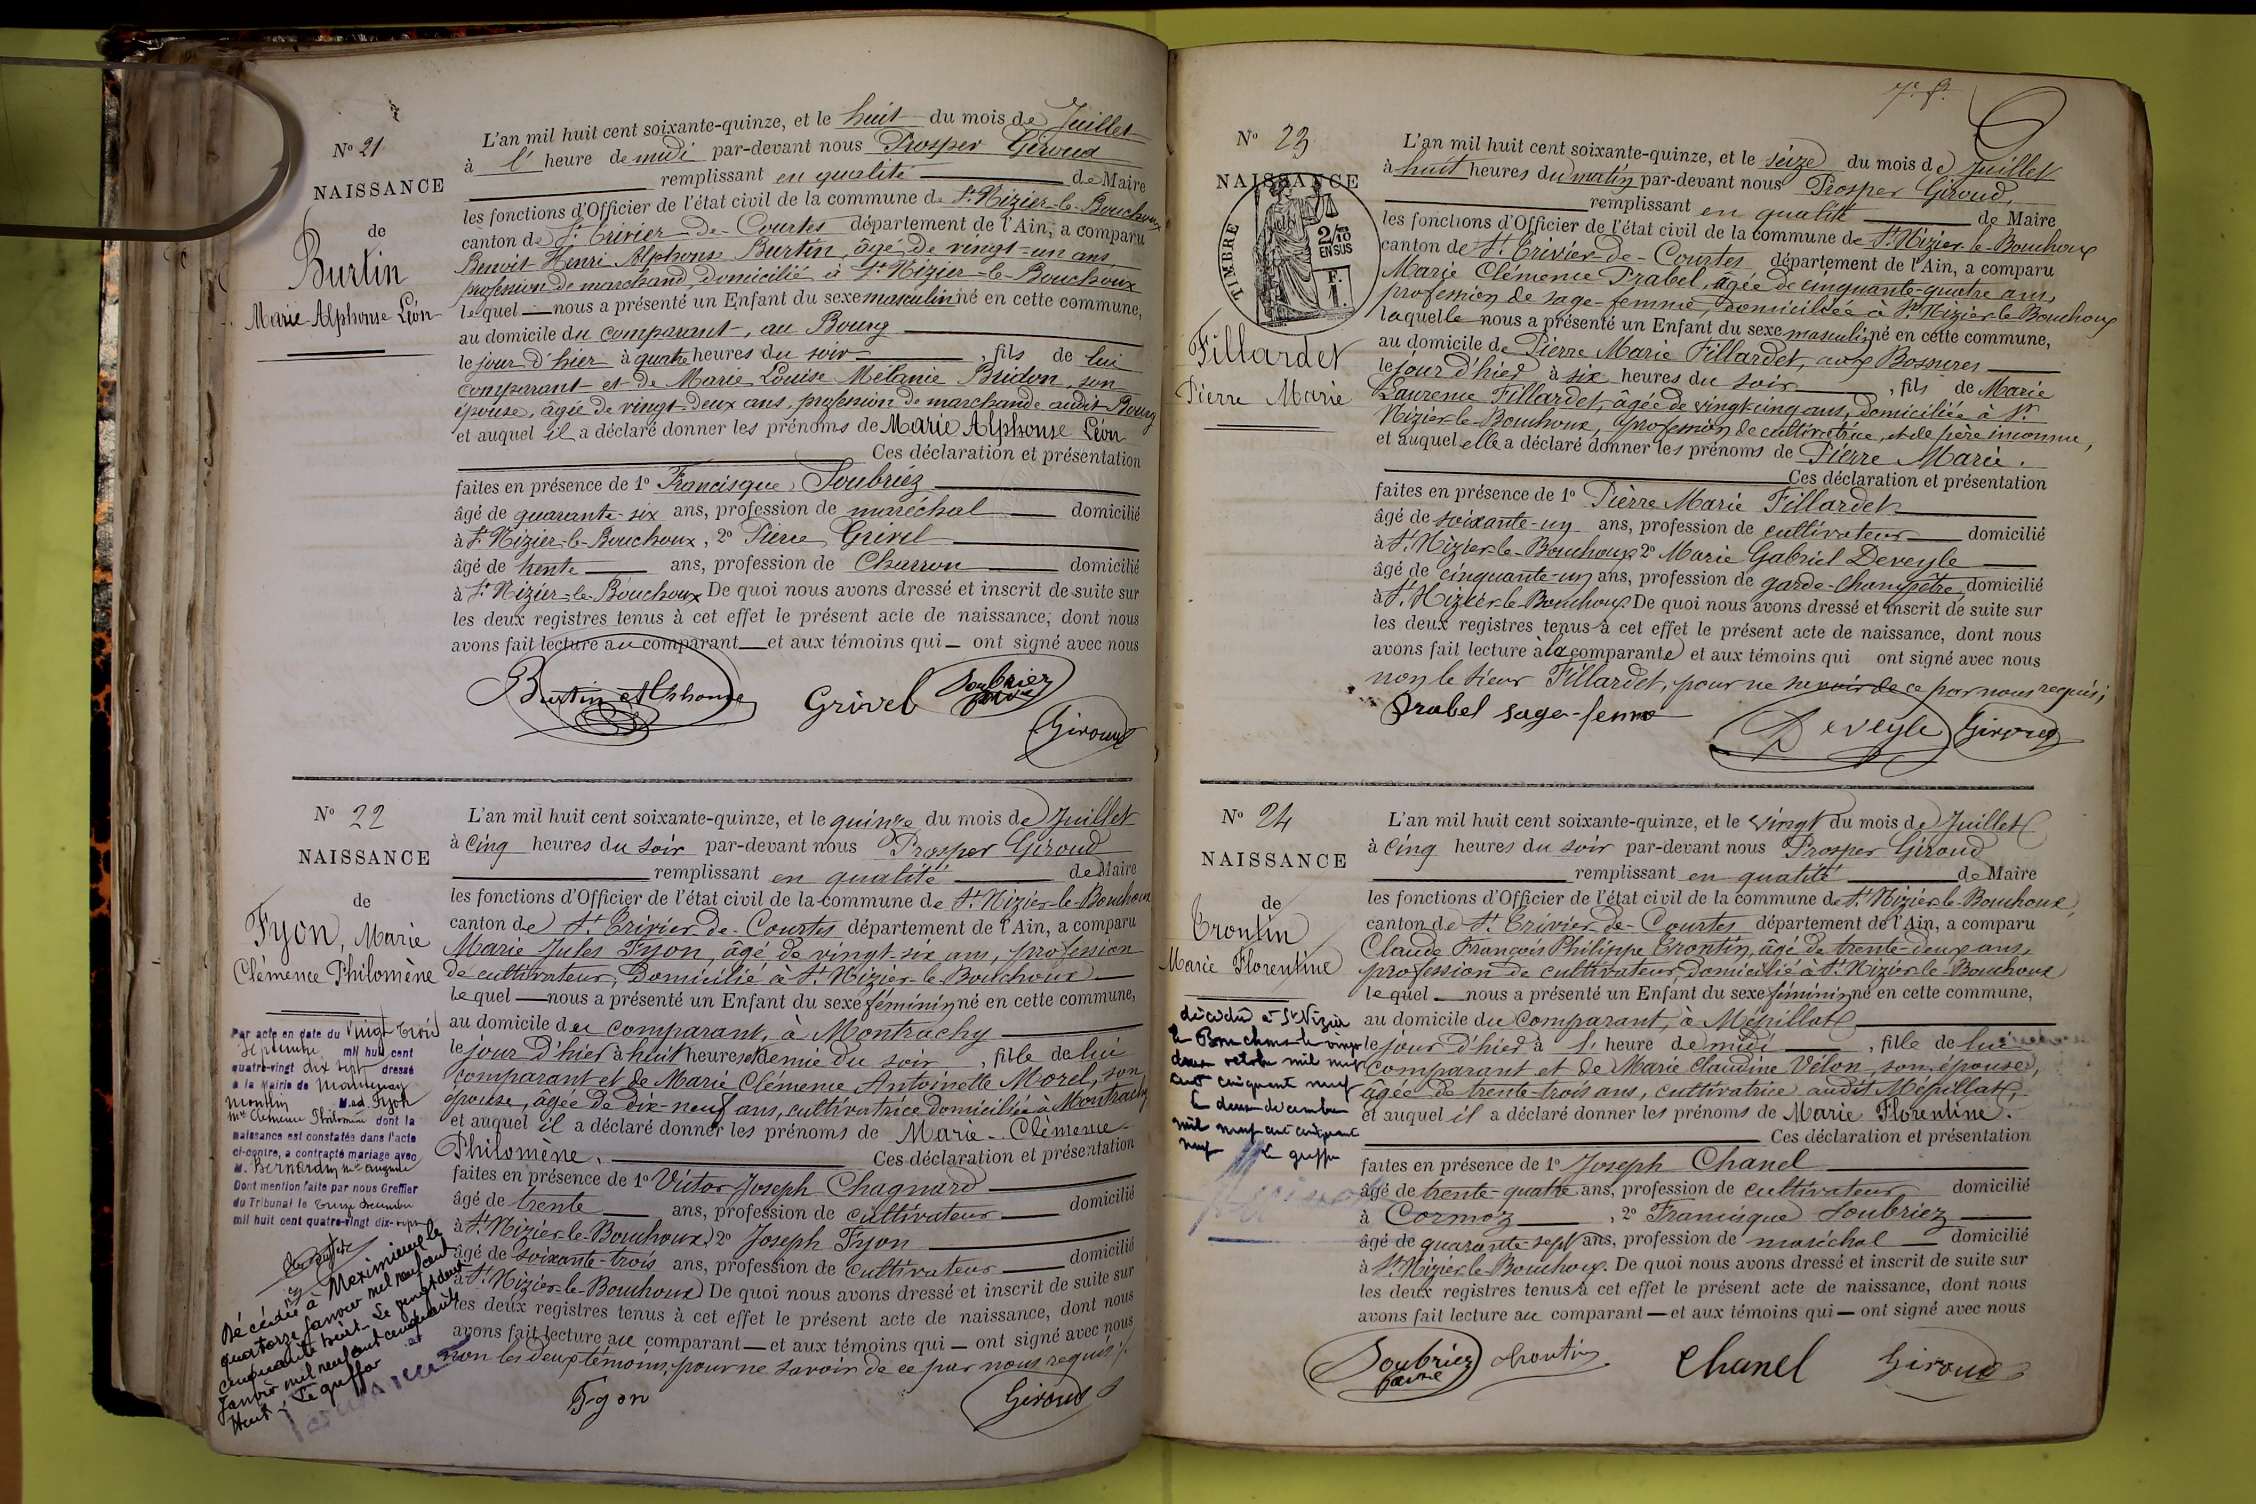 Nº 21
NAISSANCE
de
Burtin
Marie Alphonse Léon
L'an mil huit cent soixante-quinze, et le huit du mois de Juillet
à l' heure de midi par-devant nous Prosper Giroud
remplissant en qualité de Maire
les fonctions d'Officier de l'état civil de la commune de St Nizier-le-Bouchoux
canton de St Trivier-de-Courtes département de l'Ain, a comparu
Benoit Henri Alphonse Burtin, âgé de vingt-un ans
profession de marchand, domicilié à St Nizier-le-Bouchoux
lequel nous a présenté un Enfant du sexe masculin né en cette commune,
au domicile du comparant, au Bourg
le jour d'hier à quatre heures du soir, fils de lui
comparant et de Marie Louise Mélanie Bridon, son
épouse, âgée de vingt-deux ans, profession de marchande audit Bourg
et auquel il a déclaré donner les prénoms de Marie Alphonse Léon
Ces déclaration et présentation
faites en présence de 1º Francisque Soubriez
âgé de quarante-six ans, profession de maréchal domicilié
à St Nizier-le-Bouchoux, 2º Pierre Grivel
âgé de trente ans, profession de Charron domicilié
à St Nizier-le-Bouchoux De quoi nous avons dressé et inscrit de suite sur
les deux registres tenus à cet effet le présent acte de naissance, dont nous
avons fait lecture au comparant et aux témoins qui ont signé avec nous
Burtin Alphonse Grivel Soubriez Giroud
Nº 22
NAISSANCE
de
Fyon, Marie
Clémence Philomène
L'an mil huit cent soixante-quinze, et le quinze du mois de Juillet
à cinq heures du soir par-devant nous Prosper Giroud
remplissant en qualité de Maire
les fonctions d'Officier de l'état civil de la commune de St Nizier-le-Bouchoux
canton de St Trivier-de-Courtes département de l'Ain, a comparu
Marie Jules Fyon, âgé de vingt-six ans, profession
de cultivateur, Domicilié à St Nizier-le-Bouchoux
lequel nous a présenté un Enfant du sexe féminin né en cette commune,
au domicile du comparant, à Montrachy
le jour d'hier à huit heures et demie du soir, fille de lui
comparant et de Marie Clémence Antoinette Morel, son
épouse, âgée de dix-neuf ans, cultivatrice domiciliée à Montrachy
et auquel il a déclaré donner les prénoms de Marie-Clémence-
Philomène. Ces déclaration et présentation
faites en présence de 1º Victor Joseph Chagnard
âgé de trente ans, profession de cultivateur domicilié
à St Nizier-le-Bouchoux, 2º Joseph Fyon
âgé de soixante-trois ans, profession de cultivateur domicilié
à St Nizier-le-Bouchoux De quoi nous avons dressé et inscrit de suite sur
les deux registres tenus à cet effet le présent acte de naissance, dont nous
avons fait lecture au comparant et aux témoins qui ont signé avec nous
non les deux témoins, pour ne savoir de ce par nous requis.
Fyon Giroud
Par acte en date du vingt trois
septembre mil huit cent
quatre-vingt dix sept dressé
à la Mairie de
Montlin M.ad. Fyon
Mie Clémence Philomène dont la
naissance est constatée dans l'acte
ci-contre, a contracté mariage avec
M. Bernardin
Dont mention faite par nous Greffier
du Tribunal le treize décembre
mil huit cent quatre-vingt dix-sept
Décédée à Meximieux le
quatorze janvier mil neuf cent
cinquante huit. Le vingt deux
Janvier mil neuf cent cinquante
Huit. Le greffier
7e f.
Nº 23
NAISSANCE
TIMBRE
2/10
EN SUS
F.
1.
Fillardet
Pierre Marie
L'an mil huit cent soixante-quinze, et le seize du mois de Juillet
à huit heures du matin par-devant nous Prosper Giroud,
remplissant en qualité de Maire
les fonctions d'Officier de l'état civil de la commune de St Nizier-le-Bouchoux
canton de St Trivier-de-Courtes département de l'Ain, a comparu
Marie Clémence Prabel, âgée de cinquante-quatre ans,
profession de sage-femme, domiciliée à St Nizier-le-Bouchoux
laquelle nous a présenté un Enfant du sexe masculin né en cette commune,
au domicile de Pierre Marie Fillardet, aux Bossures
le jour d'hier à six heures du soir, fils de Marie
Laurence Fillardet, âgée de vingt-cinq ans, domiciliée à St
Nizier-le-Bouchoux, profession de cultivatrice, et de père inconnu,
et auquel elle a déclaré donner les prénoms de Pierre Marie.
Ces déclaration et présentation
faites en présence de 1º Pierre Marie Fillardet
âgé de soixante-un ans, profession de cultivateur domicilié
à St Nizier-le-Bouchoux 2º Marie Gabriel Deveyle
âgé de cinquante-un ans, profession de garde-champêtre domicilié
à St Nizier-le-Bouchoux De quoi nous avons dressé et inscrit de suite sur
les deux registres tenus à cet effet le présent acte de naissance, dont nous
avons fait lecture à la comparante et aux témoins qui ont signé avec nous
non le sieur Fillardet, pour ne savoir de ce par nous requis;
Prabel sage-femme Deveyle Giroud
Nº 24
NAISSANCE
de
Trontin
Marie Florentine
L'an mil huit cent soixante-quinze, et le vingt du mois de Juillet
à cinq heures du soir par-devant nous Prosper Giroud
remplissant en qualité de Maire
les fonctions d'Officier de l'état civil de la commune de St Nizier-le-Bouchoux,
canton de St Trivier-de-Courtes département de l'Ain, a comparu
Claude François Philippe Trontin, âgé de trente-deux ans,
profession de cultivateur, domicilié à St Nizier-le-Bouchoux
lequel nous a présenté un Enfant du sexe féminin né en cette commune,
au domicile du comparant, à Mépillat
le jour d'hier à l' heure de midi, fille de lui
comparant et de Marie Claudine Vélon, son épouse,
âgée de trente-trois ans, cultivatrice audit Mépillat,
et auquel il a déclaré donner les prénoms de Marie Florentine.
Ces déclaration et présentation
faites en présence de 1º Joseph Chanel
âgé de trente-quatre ans, profession de cultivateur domicilié
à Cormoz, 2º Francisque Soubriez
âgé de quarante-sept ans, profession de maréchal domicilié
à St Nizier-le-Bouchoux. De quoi nous avons dressé et inscrit de suite sur
les deux registres tenus à cet effet le présent acte de naissance, dont nous
avons fait lecture au comparant et aux témoins qui ont signé avec nous
Soubriez Trontin Chanel Giroud
décédée à St Nizier
le Bouchoux le vingt
deux octobre mil neuf
cent cinquant neuf
Le deux décembre
mil neuf cent cinquant
neuf Le greffier